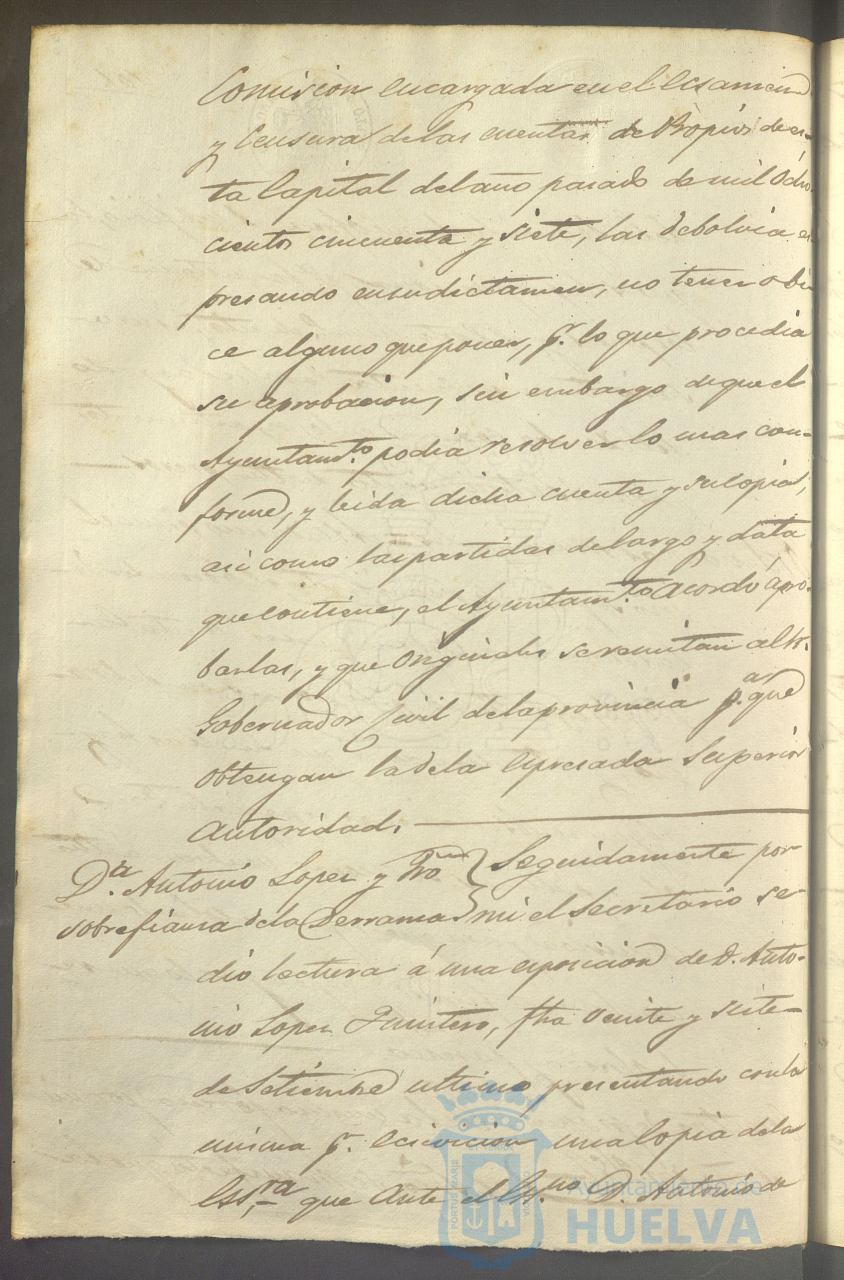 Comision encargada en el ecsamen
y Censura de las cuentas de Propios de es-
ta Capital del año pasado de mil Ocho-
cientos cincuenta y siete, las debolvia es-
presando en su dictamen, no tener obi-
ce alguno que poner, p.r lo que procedia
su aprobacion, sin embargo de que el
Ayuntam.to podia resolver lo mas con-
forme, y leida dicha cuenta y su copia,
asi como las partidas de Cargo y data
que contiene, el Ayuntam.to Acordó apro-
barlas, y que Originales se remitan al Sr.
Gobernador Civil de la provincia p.a que
Obtengan la de la espresada Superior
Autoridad.
D.n Antonio Lopez y
sobre fianza de la Derrama
Seguidamente por
mi el Secretario se
dio lectura á una esposicion de D. Anto-
nio Lopez Quintero, fha Veinte y siete
de Setiembre ultimo presentando con la
misma p.r ecsivicion una Copia de la
Ess.ra que Ante el Ess.no D. Antonio de
Ayuntamiento de
HUELVA